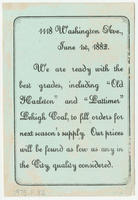 1118 Washington Ave.,
June 1st, 1882.
We are ready with the
best grades, including "Old
Harleton" and "Lattimer"
Lehigh Coal, to fill orders for
next season's supply. Our prices
will be found as low as any in
the City, quality considered.